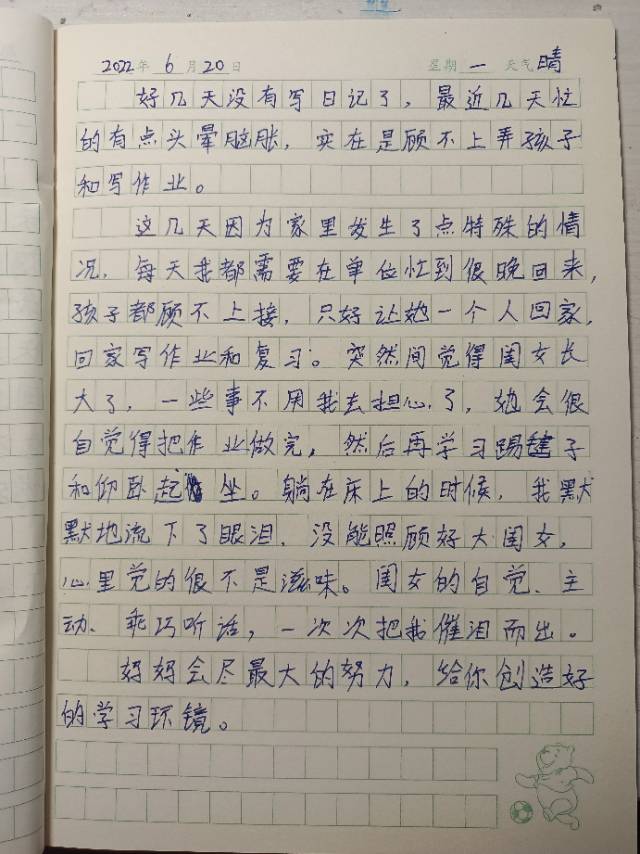 2022年 6月20日 星期一 天气晴
好几天没有写日记了，最近几天忙
的有点头晕脑胀，实在是顾不上弄孩子
和写作业。
这几天因为家里发生了点特殊的情
况，每天我都需要在单位忙到很晚回来，
孩子都顾不上接，只好让她一个人回家，
回家写作业和复习。突然间觉得闺女长
大了，一些事不用我去担心了，她会很
自觉得把作业做完，然后再学习踢毽子
和仰卧起坐。躺在床上的时候，我默
默地流下了眼泪，没能照顾好大闺女，
心里觉的很不是滋味。闺女的自觉、主
动、乖巧听话，一次次把我催泪而出。
妈妈会尽最大的努力，给你创造好
的学习环镜。